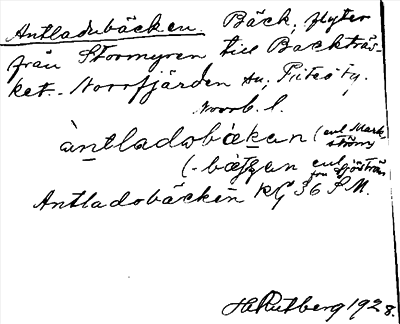 Antladubäcken. Bäck, flyter
från Stormyren till Backträs-
ket. Norrfjärden sn, Piteå ty.
Norrb. l.
àntladobäkan (enl Mark
ström)
(-bäţţan enl
fru Sjöström
Antladobäcken RG 36 S.M.
H. Rutberg 1928.